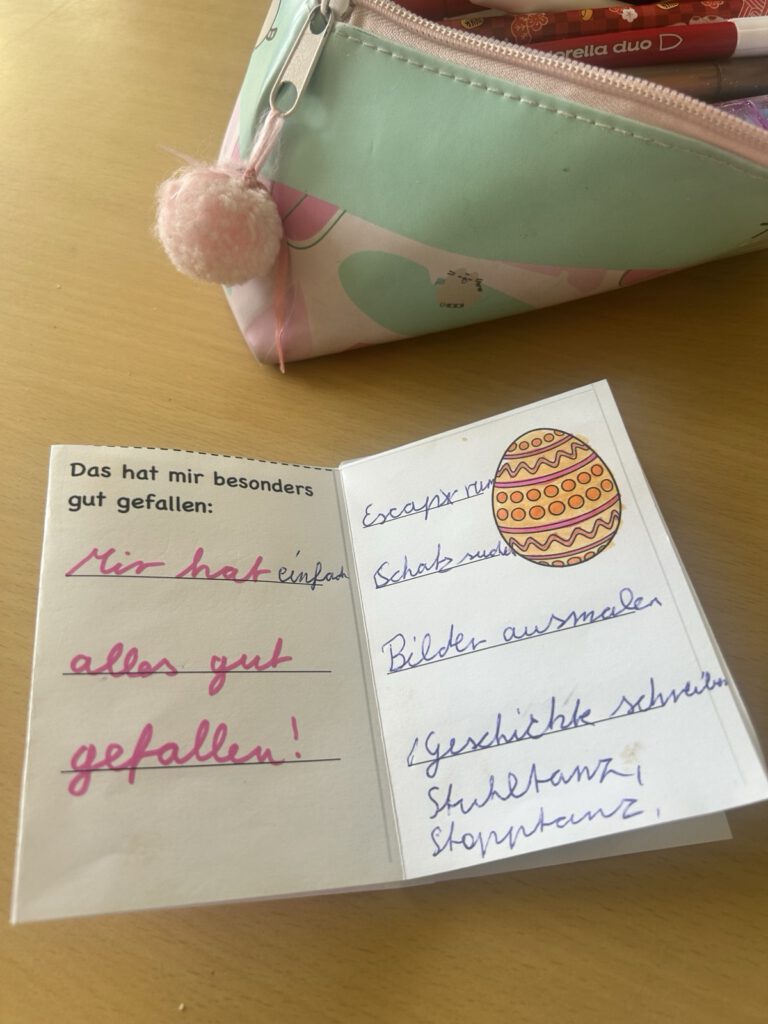 orella duo
Das hat mir besonders
gut gefallen:
Mir hat einfach
alles gut
gefallen!
Schatzsuche
Bilder ausmalen
Geschichte schreiben
Stuhltanz,
Stopptanz,